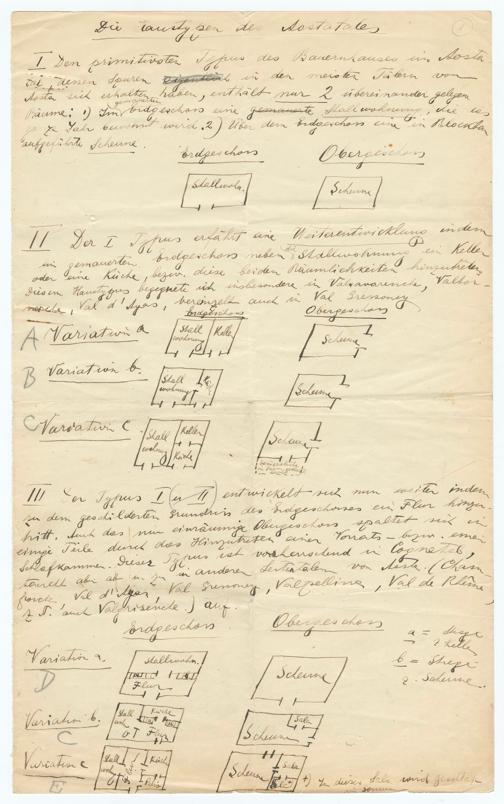 Die Haustypen des Aostatales
1
I Den primitivsten Typus des Bauernhauses in Aosta
dessen Spuren in den meisten Tälern von
Aosta sich erhalten haben, enthält nur 2 übereinander gelegen
Räume: 1) Im Erdgeschoss eine gemauerte Stallwohnung, die
Jahr bewohnt wird, 2) Über dem Erdgeschoss eine in Blockbau
aufgeführte Scheune.
Erdgeschoss Obergeschoss
Stallwohn. Scheune
II Der I Typus erfährt eine Weiterentwicklung indem
im gemauerten Erdgeschoss neben Stallwohnung ein Keller
oder eine Küche, bezw. diese beiden Räumlichkeiten hinzutreten
Diesen Haustypus begegnete ich insbesondere in Valsavarenche,
Val d'Ayas, vereinzelt auch in Val Gressoney
Erdgeschoss Obergeschoss
A Variation a Stall wohnung Keller Scheune
B Variation b. Stall wohnung Scheune
C Variation c. Stall wohnung Keller Küche Scheune
III Der Typus I (u II) entwickelt sich nun weiter indem
zu dem geschilderten Grundriss des Erdgeschosses ein Flur hinzu-
tritt. Auch das nun einräumige Obergeschoss spaltet sich in
einige Teile durch das Hinzutreten einer Vorrats- bezw. einer
Schlafkammer. Dieser Typus ist vorherrschend in Cognetal,
taucht aber ab u. zu in anderen Seitentälern von Aosta (Cham
Val d'Ayas, Val Gressoney, Valpellina, Val de Rhême,
z. T. auch Valgrisenche) auf.
Erdgeschoss Obergeschoss
a = Stiege
z. Keller
b = Stiege
z. Scheune
Variation a. Stallwohn. Flur Scheune
D
Variation b. Stall Küche Flur Scheune
C
Variation c Stall Scheune
E
+) In dieses